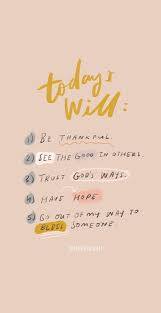 today i
will:
1) BE THANKFUL.
2) SEE THE GOOD IN OTHERS.
3) TRUST GOD'S WAYS.
4) HAVE HOPE
5) GO OUT OF MY WAY TO
BLESS SOMEONE